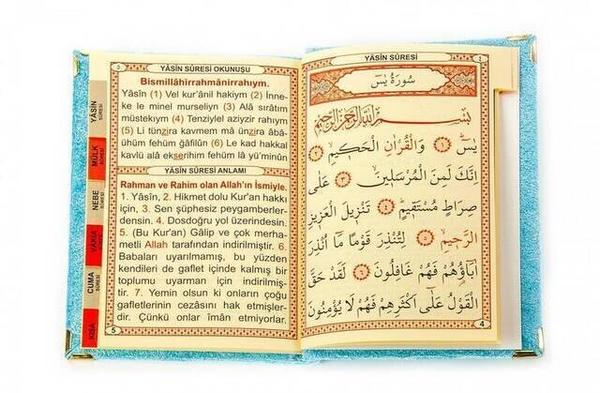 YÂSİN SÛRESİ
سُورَةُ يٰسٓ
بِسْمِ اللّٰهِ الرَّحْمٰنِ الرَّحِيمِ
يٰسٓ ﴿١﴾ وَالْقُرْاٰنِ الْحَك۪يمِ ﴿٢﴾
اِنَّكَ لَمِنَ الْمُرْسَل۪ينَ ﴿٣﴾ عَلٰى
صِرَاطٍ مُسْتَق۪يمٍ ﴿٤﴾ تَنْز۪يلَ الْعَز۪يزِ
الرَّح۪يمِ ﴿٥﴾ لِتُنْذِرَ قَوْمًا مَٓا اُنْذِرَ
اٰبَٓاؤُ۬هُمْ فَهُمْ غَافِلُونَ ﴿٦﴾ لَقَدْ حَقَّ
الْقَوْلُ عَلٰٓى اَكْثَرِهِمْ فَهُمْ لَا يُؤْمِنُونَ
4
YÂSİN SÛRESİ OKUNUŞU
Bismillâhirrahmânirrahıym.
Yâsîn (1) Vel kur'ânil hakiym (2) İnne-
ke le minel murseliyn (3) Alâ sırâtım
müstekıym (4) Tenziylel aziyzir rahıym
(5) Li tünzira kavmem mâ ünzira âbâ-
ühüm fehüm ğâfilûn (6) Le kad hakkal
kavlü alâ ekserihim fehüm lâ yü'minûn
YÂSİN SÛRESİ ANLAMI
Rahman ve Rahim olan Allah'ın İsmiyle.
1. Yâsîn, 2. Hikmet dolu Kur'an hakkı
için, 3. Sen şüphesiz peygamberler-
densin. 4. Dosdoğru yol üzerindesin.
5. (Bu Kur'an) Gâlip ve çok merha-
metli Allah tarafından indirilmiştir. 6.
Babaları uyarılmamış, bu yüzden
kendileri de gaflet içinde kalmış bir
toplumu uyarman için indirilmiş-
tir. 7. Yemin olsun ki onların çoğu
gafletlerinin cezâsını hak etmişler-
dir. Çünkü onlar îmân etmiyorlar.
5
YÂSİN
SÛRESİ
MÜLK
SÛRESİ
NEBE
SÛRESİ
VAKIA
SÛRESİ
CUMA
SÛRESİ
KISA